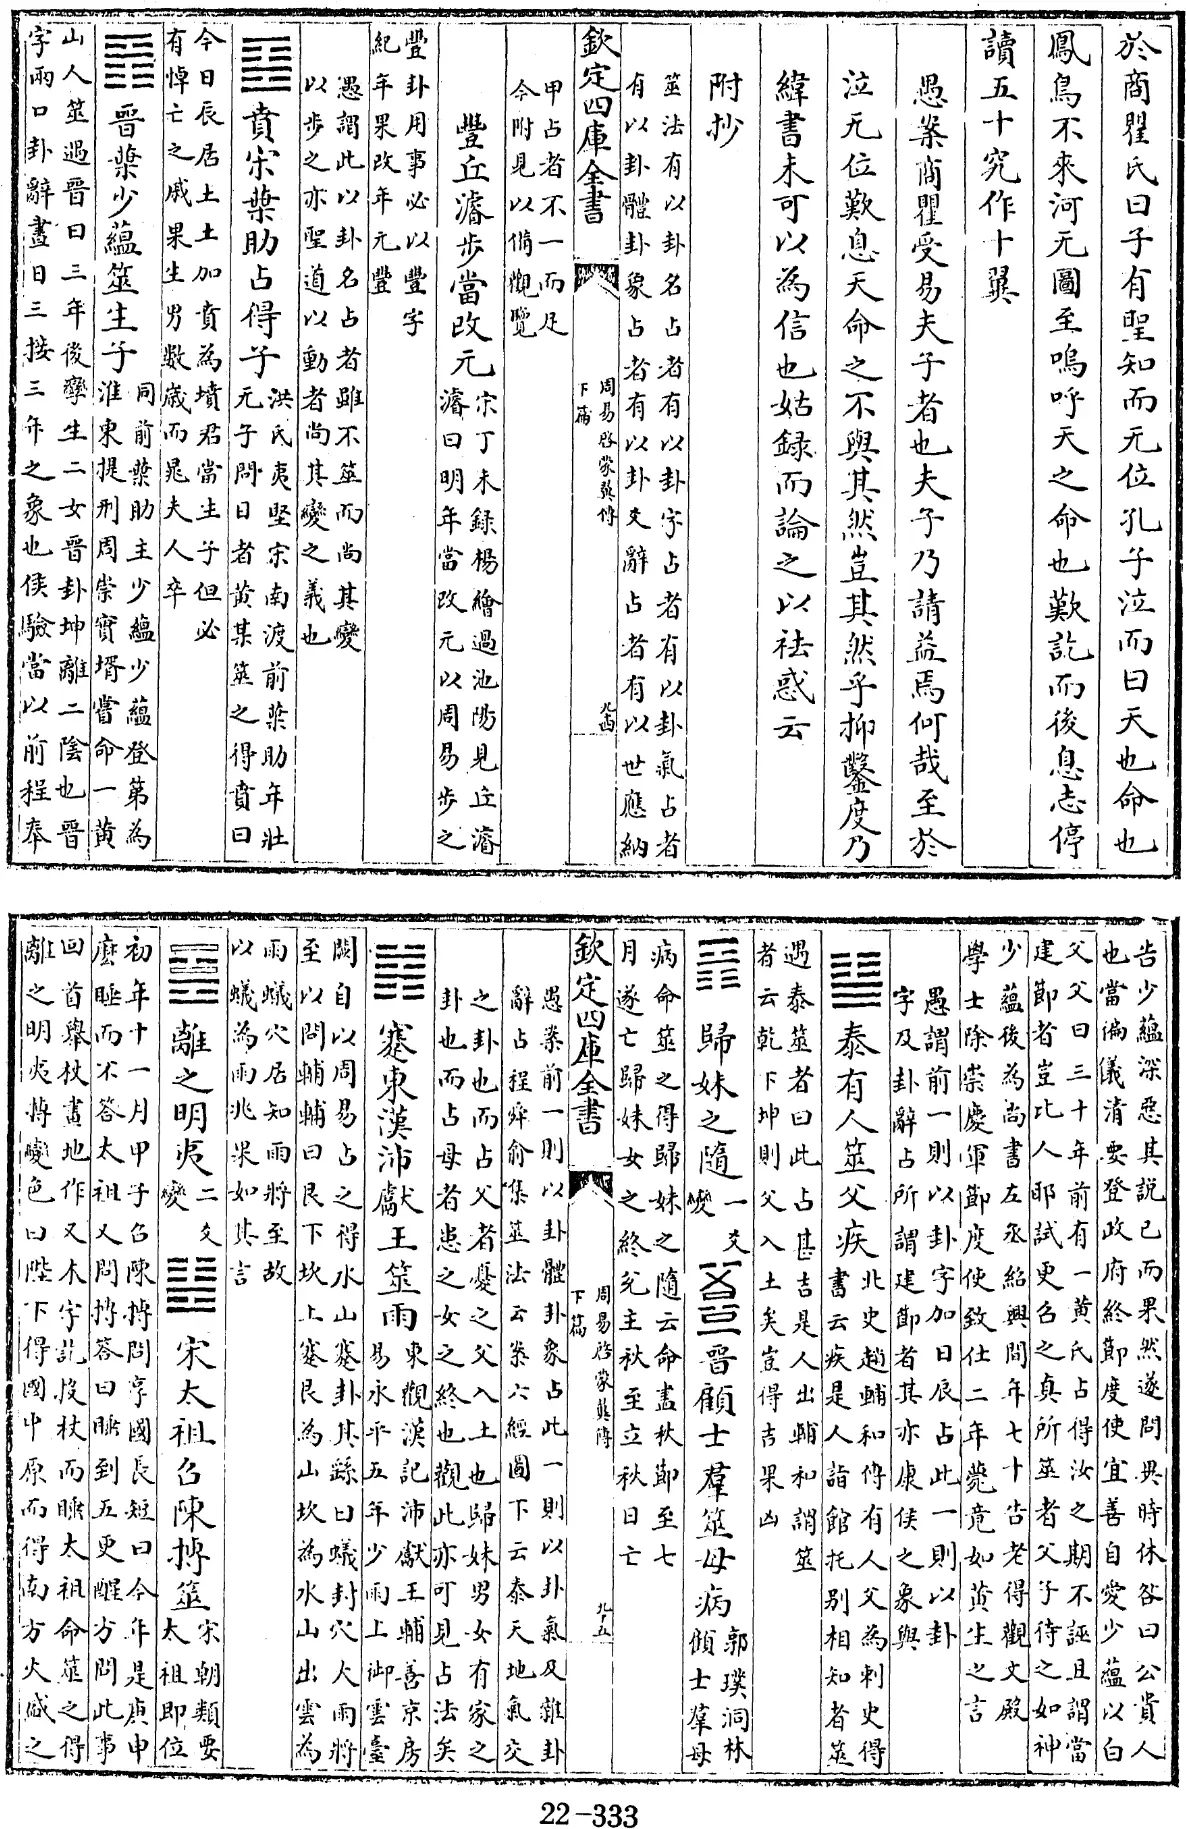 於商瞿氏曰子有聖知而无位孔子泣而曰天也命也
鳳鳥不來河无圖至嗚呼天之命也歎訖而後息志停
讀五十究作十翼
愚案商瞿受易夫子者也夫子乃請益焉何哉至於
泣无位歎息天命之不與其然豈其然乎抑鑿度乃
緯書未可以為信也姑録而論之以祛惑云
附抄
筮法有以卦名占者有以卦字占者有以卦氣占者
有以卦體卦象占者有以卦爻辭占者有以世應納
欽定四庫全書
周易啓蒙翼傳
下篇
九十四
甲占者不一而足
今附見以備觀覽
豐丘濬步當改元
宋丁未録楊繪過池陽見丘濬
濬曰明年當改元以周易步之
豐卦用事必以豐字
紀年果改年元豐
愚謂此以卦名占者雖不筮而尚其變
以步之亦聖道以動者尚其變之義也
賁宋葉助占得子
洪氏夷堅宋南渡前葉助年壯
元子問日者黄某筮之得賁曰
今日辰居土土加賁為墳君當生子但必
有悼亡之戚果生男數歳而晁夫人卒
晉葉少蘊筮生子
同前葉助主少蘊少蘊登第為
淮東提刑周崇實壻嘗命一黄
山人筮遇晉曰三年後孿生二女晉卦坤離二陰也晉
字兩口卦辭晝日三接三年之象也俟驗當以前程奉
告少蘊深惡其説已而果然遂問異時休咎曰公貴人
也當徧儀清要登政府終節度使宜善自愛少蘊以白
父父曰三十年前有一黄氏占得汝之期不誣且謂當
建節者豈比人耶試更召之真所筮者父子待之如神
少蘊後為尚書左丞紹興間年七十告老得觀文殿
學士除崇慶軍節度使致仕二年薨竟如黄生之言
愚謂前一則以卦字加日辰占此一則以卦
字及卦辭占所謂建節者其亦康侯之象與
泰有人筮父疾
北史趙輔和傳有人父為刺史得
書云疾是人詣館托别相知者筮
遇泰筮者曰此占甚吉是人出輔和謂筮
者云乾下坤則父入土矣豈得吉果凶
歸妹之隨
一爻
變
晉顧士羣筮母病
郭璞洞林
傾士羣母
病命筮之得歸妹之隨云命盡秋節至七
月遂亡歸妹女之終兌主秋至立秋日亡
欽定四庫全書
周易啓蒙翼傳
下篇
九十五
愚案前一則以卦體卦象占此一則以卦氣及雜卦
辭占程舜俞集筮法云案六經圖下云泰天地氣交
之卦也而占父者憂之父入土也歸妹男女有家之
卦也而占母者患之女之終也觀此亦可見占法矣
蹇東漢沛獻王筮雨
東觀漢記沛獻王輔善京房
易永平五年少雨上御雲臺
閣自以周易占之得水山蹇卦其繇曰蟻封穴大雨將
至以問輔輔曰艮下坎上蹇艮為山坎為水山出雲為
雨蟻穴居知雨將至故
以蟻為雨兆果如其言
離之明夷
二爻
變
宋太祖召陳摶筮
宋朝類要
太祖即位
初年十一月甲子召陳摶問享國長短曰今年是庚申
麽睡而不答太祖又問摶答曰睡到五更醒方問此事
回首舉杖畫地作又木字訖投杖而睡太祖命筮之得
離之明夷摶變色曰陛下得國中原而得南方火盛之
22-333